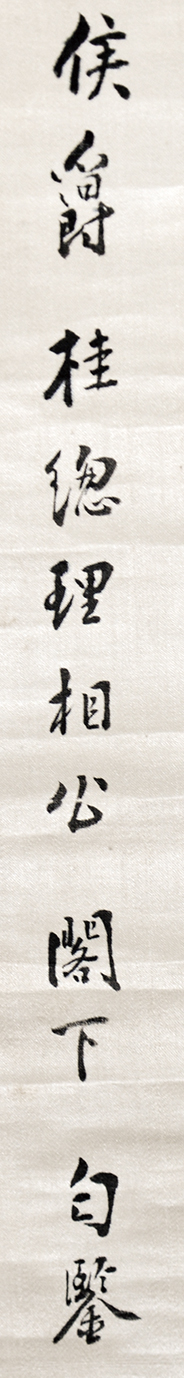 侯爵 桂總理相公 閣下 匀鑒